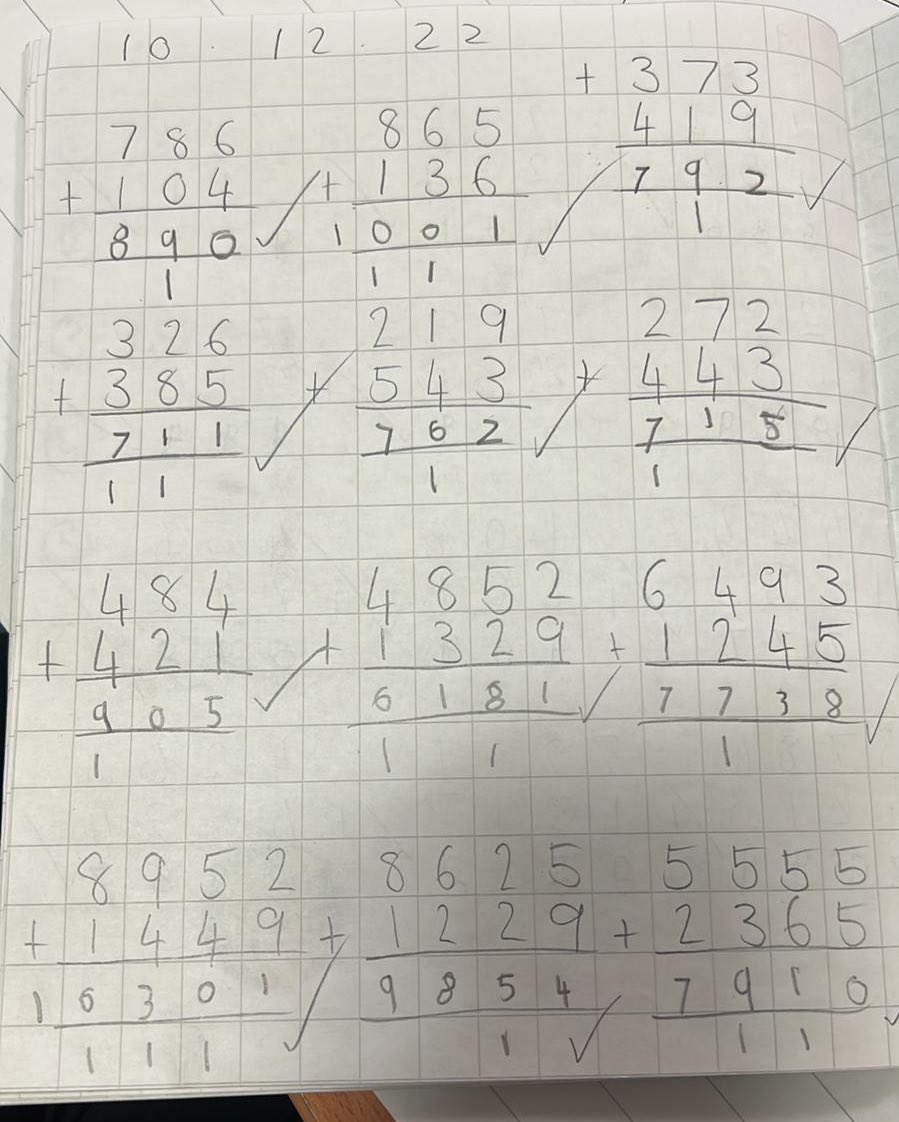 10.12.22
786
+ 104
890
1
865
+ 136
1001
1 1
+ 373
419
792
1
326
+ 385
711
1 1
219
+ 543
762
1
272
+ 443
715
1
484
+ 421
905
1
4852
+ 1329
6181
1 1
6493
+ 1245
7738
1
8952
+ 1449
10301
1 1 1
8625
+ 1229
9854
1
5555
+ 2365
7910
1 1